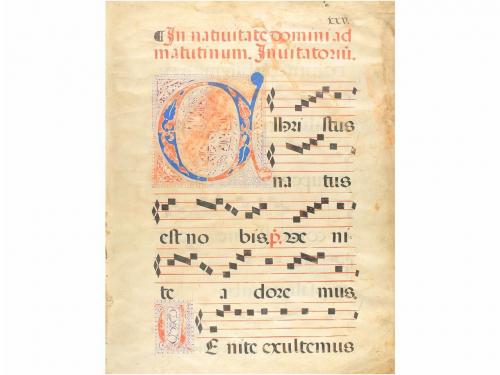 xxv.
¶In nativitate domini ad
matutinum. Invitatoriū.
Christus
na tus
est no bis. ꝟ. Ve ni
te a dore mus.
Venite exultemus